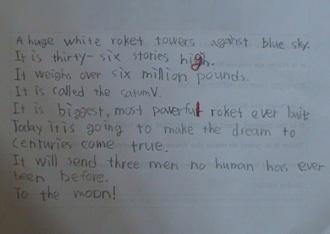 A huge white roket towers against blue sky.
It is thirty-six stories high.
It weighs over six million pounds.
It is called the saturn V.
It is biggest, most powerful roket ever built
Today it is going to make the dream to
centuries come true.
It will send three men no human has ever
been before.
To the moon!